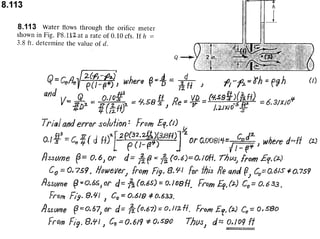 8.113
8.113 Water flows through the orifice meter
shown in Fig. P8.112 at a rate of 0.10 cfs. If h =
3.8 ft, determine the value of d.
Q
2 in.
d
h
Q = C₀A₀ √(2(p₁-p₂) / ρ(1-β⁴)), where β = d/D = d / (2/12 ft), p₁-p₂ = γh = ρgh (1)
and
V = Q / (π/4 D²) = 0.10 ft³/s / (π/4 (2/12 ft)²) = 4.58 ft/s, Re = VD/ν = (4.58 ft/s)(2/12 ft) / (1.21x10⁻⁵ ft²/s) = 6.31x10⁴
Trial and error solution: From Eq.(1)
0.1 ft³/s = C₀ π/4 (d ft)² [2ρ(32.2 ft/s²)(3.8 ft) / ρ(1-β⁴)]^½ or 0.00814 = C₀d² / √(1-β⁴), where d~ft (2)
Assume β = 0.6, or d = 2/12 β = 2/12 (0.6) = 0.10 ft. Thus, from Eq.(2)
C₀ = 0.759. However, from Fig. 8.41 for this Re and β, C₀ = 0.615 ≠ 0.759
Assume β = 0.65, or d = 2/12 (0.65) = 0.108 ft. From Eq.(2) C₀ = 0.633.
From Fig. 8.41, C₀ = 0.618 ≠ 0.633.
Assume β = 0.67, or d = 2/12 (0.67) = 0.112 ft. From Eq.(2) C₀ = 0.580
From Fig. 8.41, C₀ = 0.619 ≠ 0.580 Thus, d = 0.109 ft